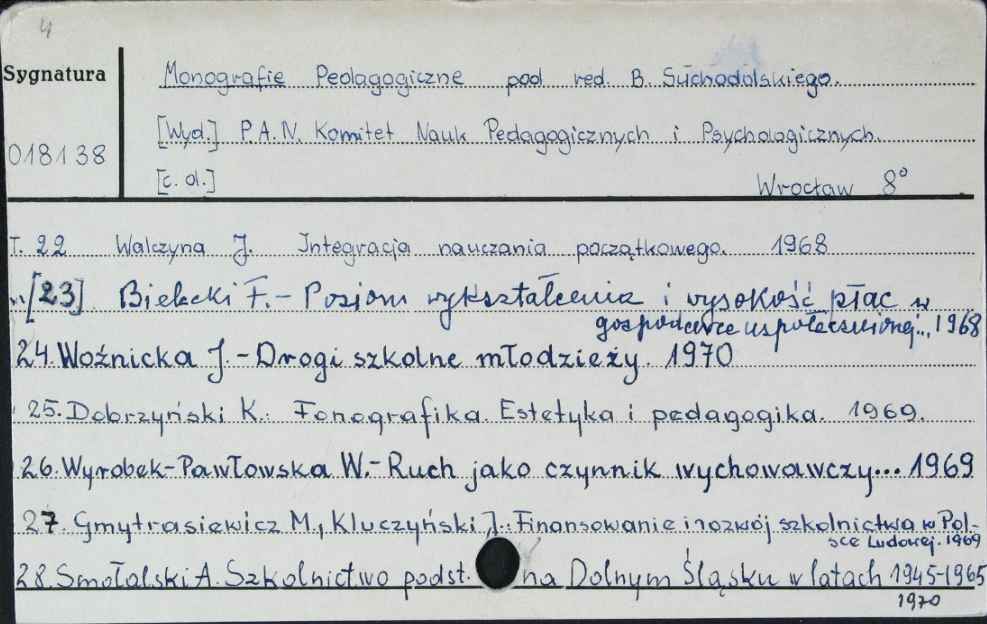 4
Sygnatura
Monografie Pedagogiczne pod red. B. Suchodolskiego.
[Wyd.] P.A.N. Komitet Nauk Pedagogicznych i Psychologicznych.
018138
[c. d.]
Wrocław 8°
T. 22 Walczyna J. Integracja nauczania początkowego. 1968
„ [23]. Bielecki F. - Poziom wykształcenia i wysokość płac w
gospodarce uspołecznionej... 1968
24. Woźnicka J. - Drogi szkolne młodzieży. 1970
25. Dobrzyński K.: Fonografika. Estetyka i pedagogika. 1969.
26. Wyrobek-Pawłowska W. - Ruch jako czynnik wychowawczy... 1969
27. Gmytrasiewicz M., Kluczyński J.: Finansowanie i rozwój szkolnictwa w Pol-
sce Ludowej. 1969
28. Smołalski A. Szkolnictwo podst. na Dolnym Śląsku w latach 1945-1965
1970